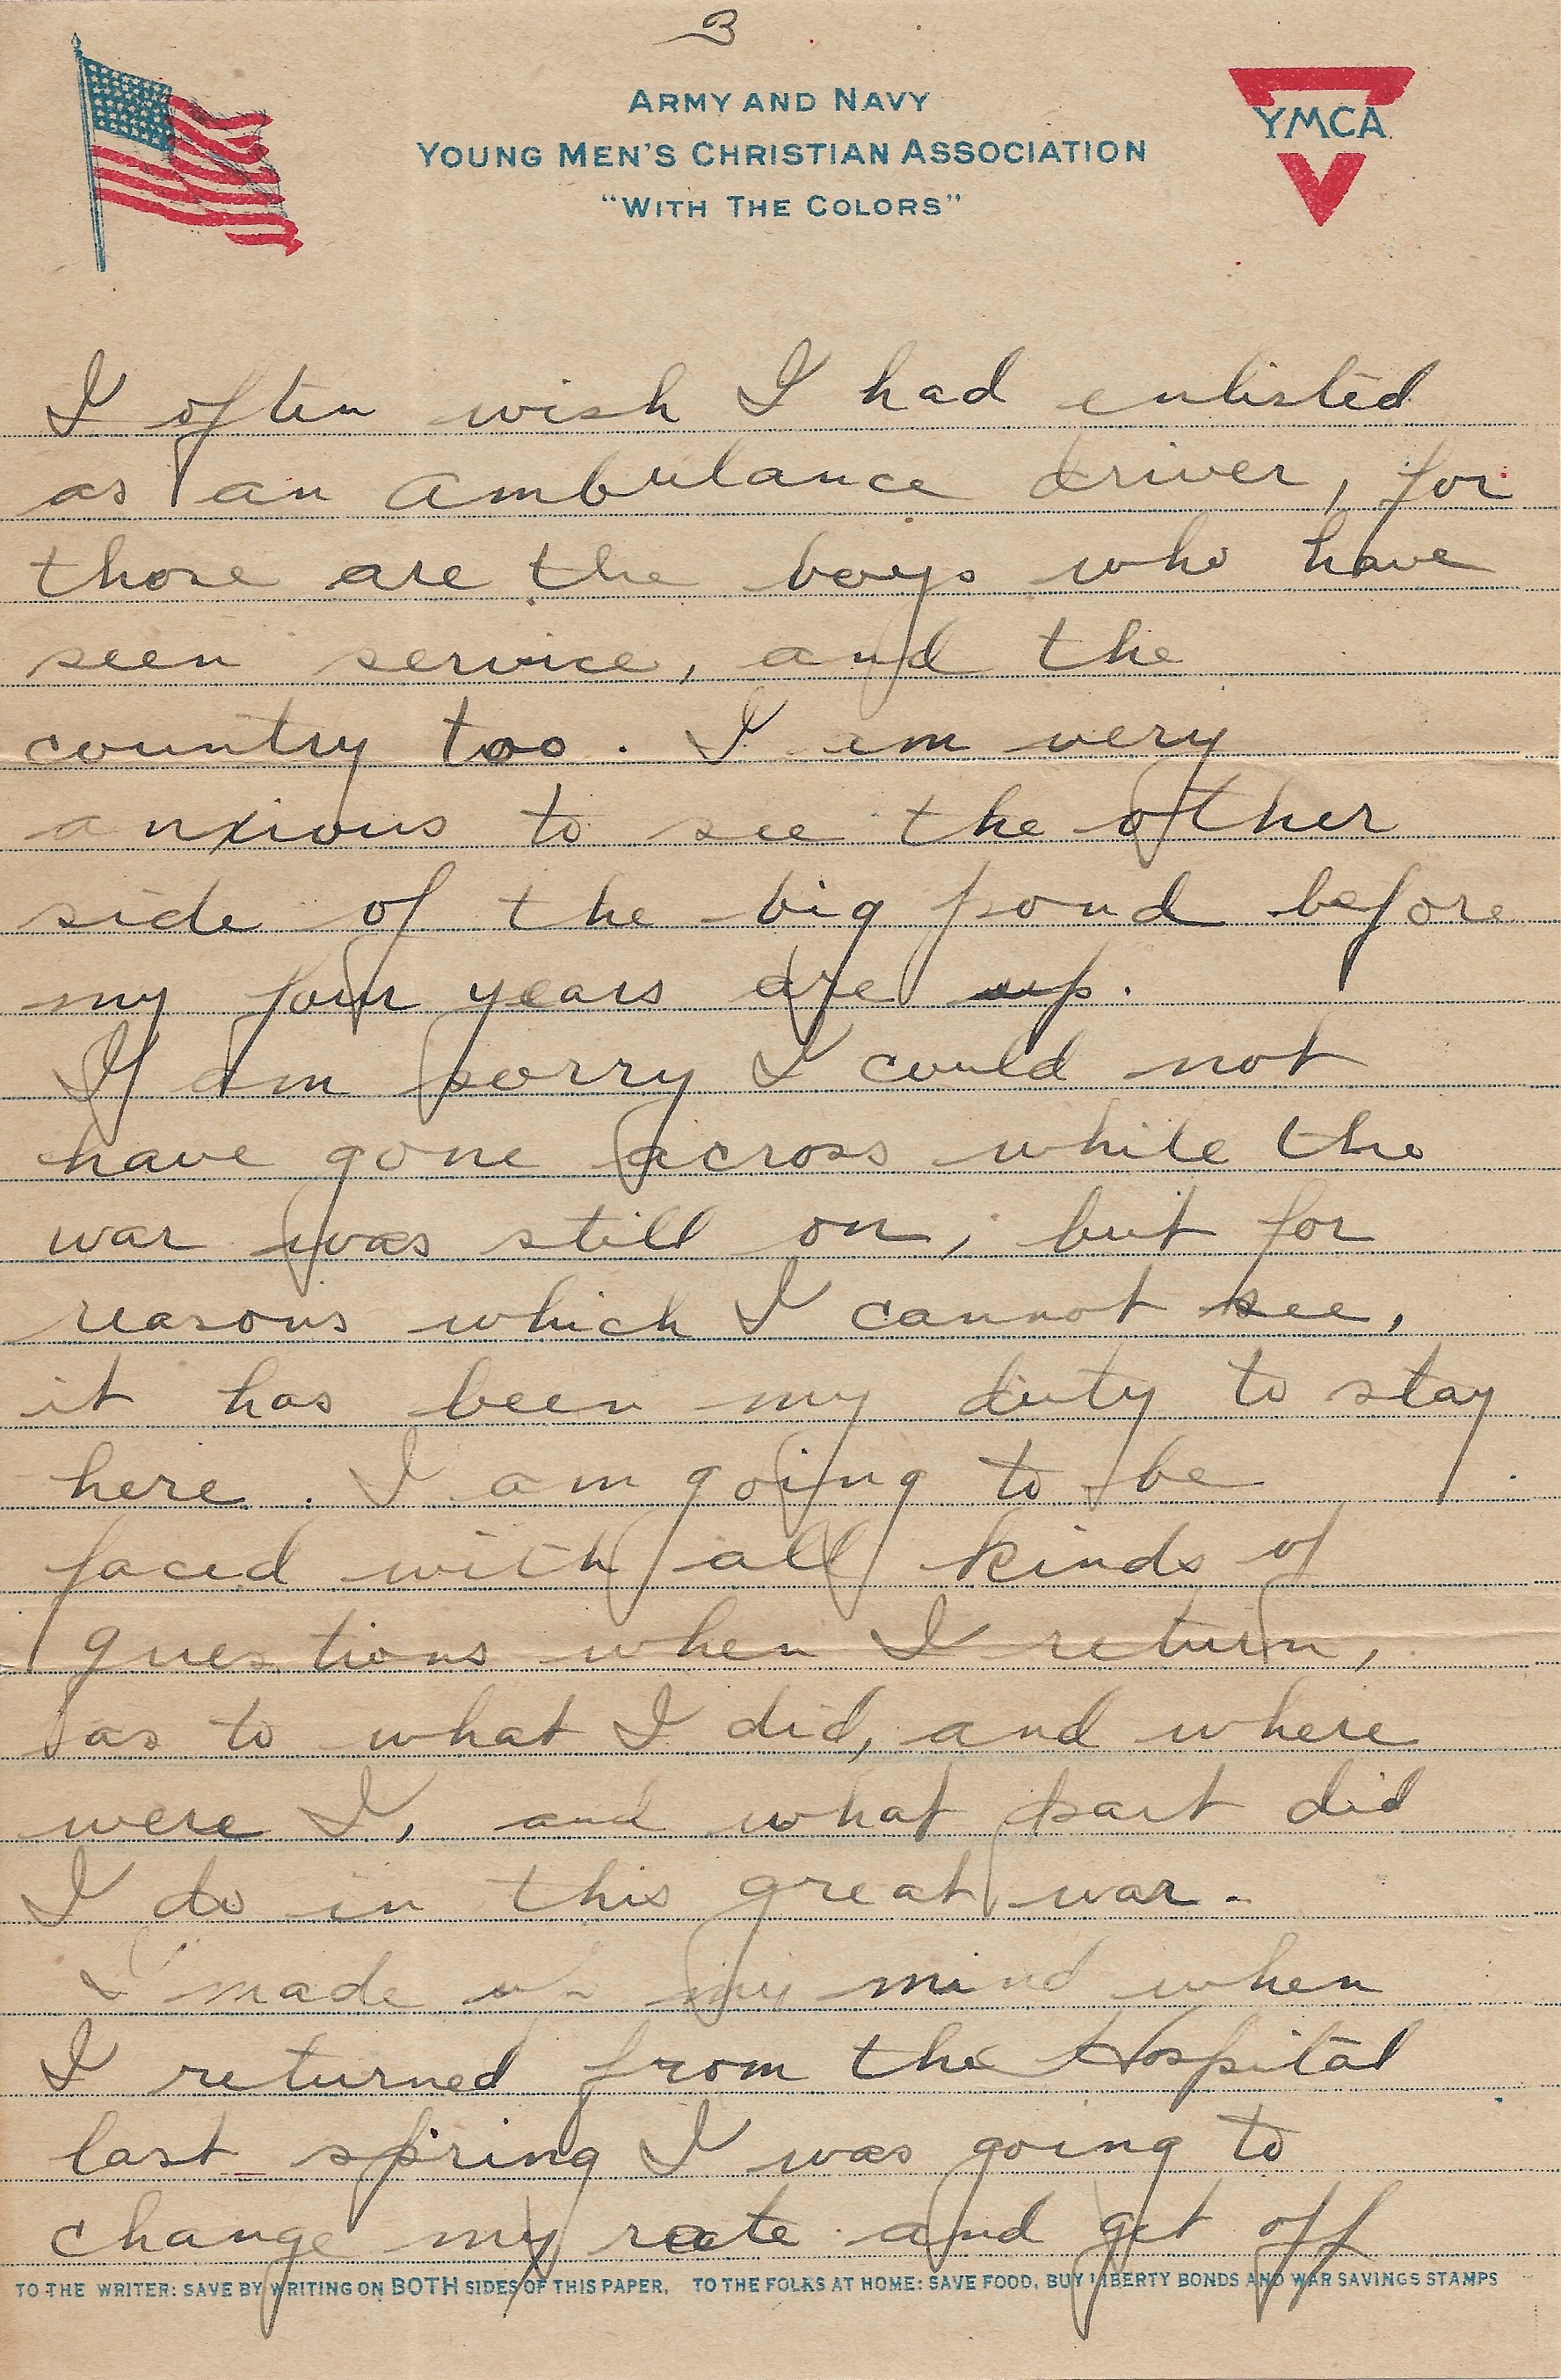 3
ARMY AND NAVY
YOUNG MEN'S CHRISTIAN ASSOCIATION
"WITH THE COLORS"
YMCA
I often wish I had enlisted
as an ambulance driver, for
those are the boys who have
seen service, and the
country too. I am very
anxious to see the other
side of the big pond before
my four years are up.
I am sorry I could not
have gone across while the
war was still on, but for
reasons which I cannot see,
it has been my duty to stay
here. I am going to be
faced with all kinds of
questions when I return,
as to what I did, and where
were I, and what part did
I do in this great war.
I made up my mind when
I returned from the Hospital
last spring I was going to
change my rate and get off
TO THE WRITER: SAVE BY WRITING ON BOTH SIDES OF THIS PAPER. TO THE FOLKS AT HOME: SAVE FOOD, BUY LIBERTY BONDS AND WAR SAVINGS STAMPS